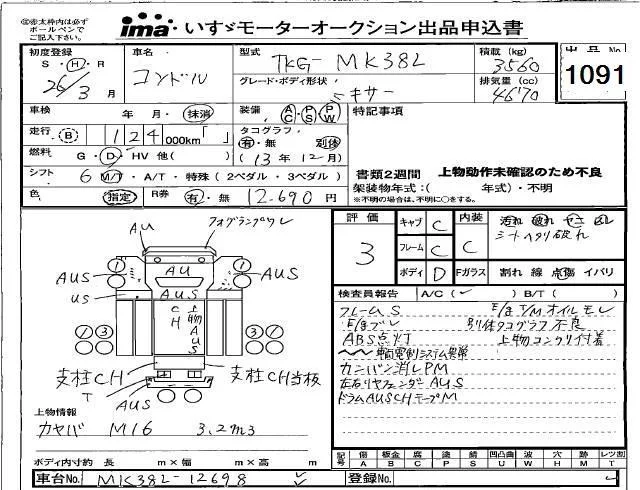 ◎赤太枠内は必ず
ボールペンで
ご記入下さい。
ima いすゞモーターオークション出品申込書
初度登録 車名 型式 積載 (kg) 出品No
S・H・R コンドル TKG-MK38L 3560 1091
26/3月 グレード・ボディ形状 排気量 (cc)
キサー 4670
車検 年 月・抹消 装備 AC PS PW 特記事項
走行 B 124000km「 」 タコグラフ 有・無 別体
燃料 G・D・HV 他( ) (13年12月) 書類2週間 上物動作未確認のため不良
シフト 6 M/T・A/T・特殊(2ペダル・3ペダル) 架装物年式:( 年式)・不明
※不明の場合は、不明に○をする。
色 指定 R券 有・無 12,690円
評価 キャブ C 内装 汚れ 破れ ヤニ ムレ
3 フレーム C C シートヘタリ破れ
ボディ D Fガラス 割れ 線 点傷 イバリ
AU フォグランプワレ
1 AU 1
AUS AUS
US AUS
CH 上物AUS
3 3
支柱CH 支柱CH当板
T
AUS
検査員報告 A/C( ) B/T( )
フレームS E/g T/Mオイルモレ
E/gブレ 別体タコグラフ不良
ABS点灯 上物コンクリ付着
輌電制システム異常
カンバン消しPM
左右リヤフェンダーAUS
ドラムAUSCHテープM
上物情報
カヤバ M16 3.2m3
記号 傷 板金 腐 塗 錆 凹凸曲 波 穴 跡 レツ割
A B C P S U W H M T
ボディ内寸約 長 m×幅 m×高 m
車台No. MK38L-12698 登録No.